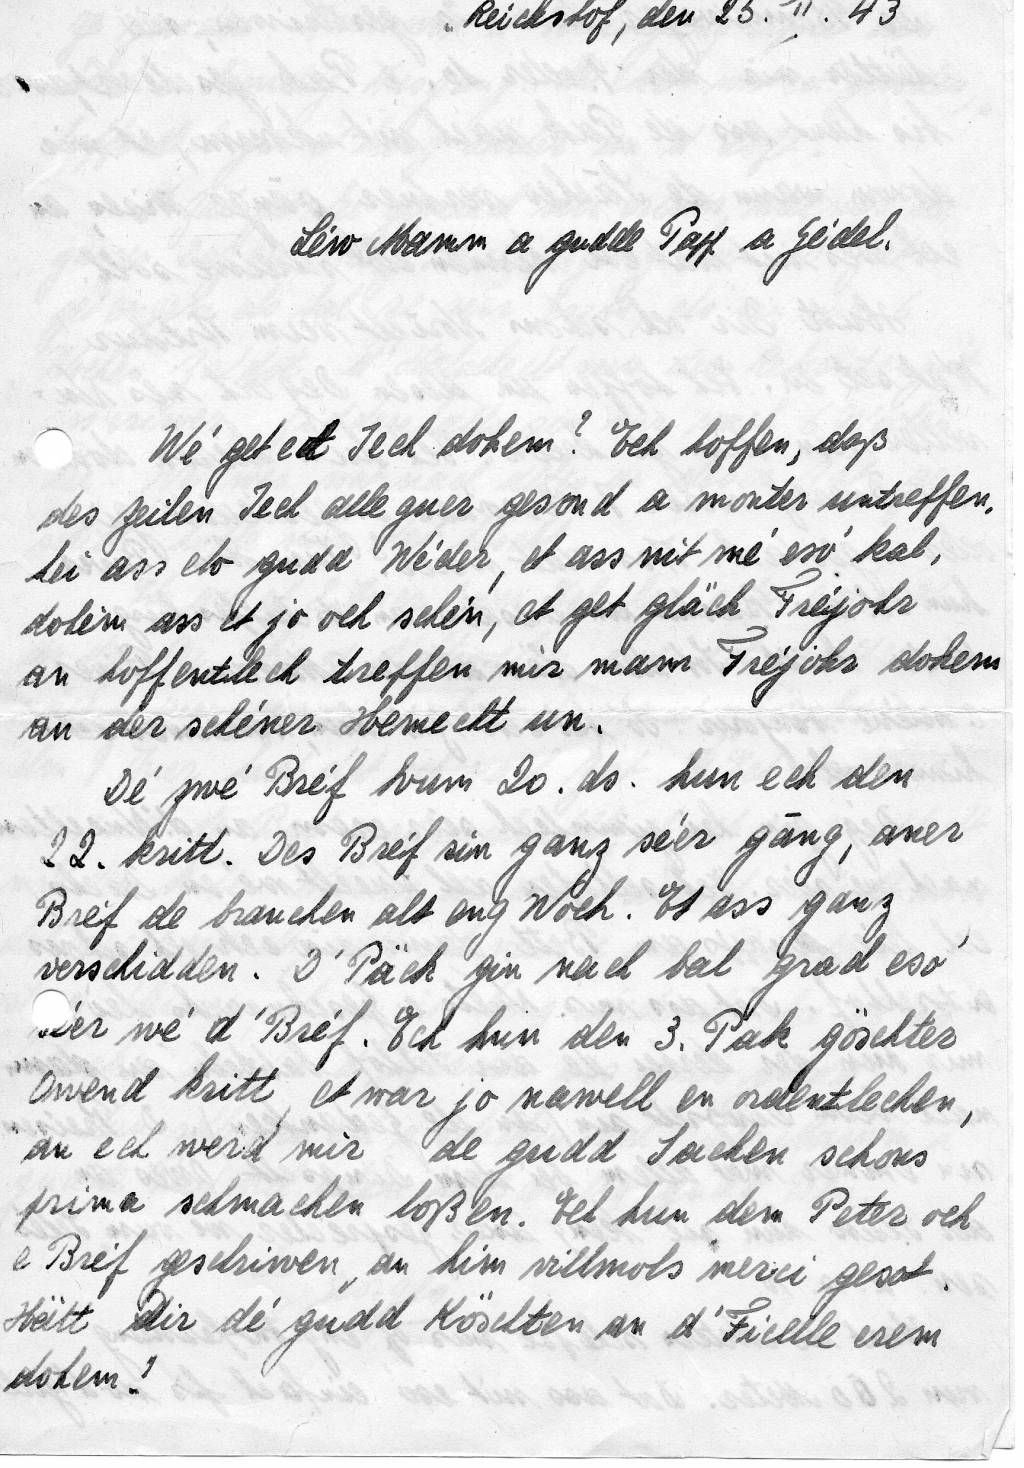 Reichshof, den 25. II. 43
Léiw Mamm a gudde Papp a Gédel.
Wé get et Iech dohem? Ech hoffen, daß
des Zeilen Iech alleguer gesond a monter untreffen,
hei ass elo gudd Wéder, et ass nit mé esó kal,
dohém ass et jo och schén, et get gläch Fréijohr
an hoffentlech treffen mir mam Fréjohr dohem
an der schéner Hemecht un.
Dé zwé Bréf vum 20. ds. hun ech den
22. kritt. Des Bréif sin ganz séer gāng, aner
Bréif de brauchen alt eng Woch. Et ass ganz
verschidden. D'Päck gin nach bal grad esó
séer wé d'Bréf. Ech hun den 3. Pak göschter
Owend kritt, et war jo nawell en ordentlechen,
an ech werd mir de gudd Sachen schons
prima schmachen loßen. Ech hun dem Peter och
e Bréif geschriwen, an him villmols merci gesot.
Hätt Dir dé gudd Köschten an d'Ficelle erem
dohem?